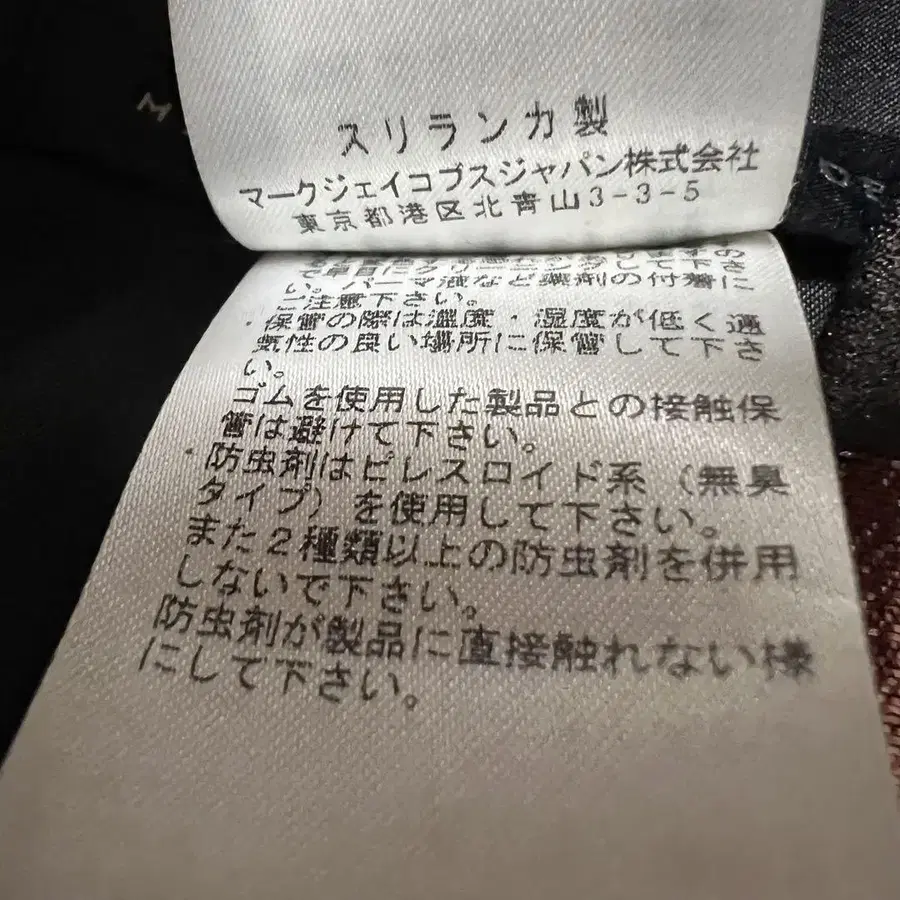 スリランカ製
マークジェイコブスジャパン株式会社
東京都港区北青山3-3-5
で早目にクリーニングして下さ
い。パーマ液など薬剤の付着に
ご注意下さい。
・保管の際は温度・湿度が低く通
気性の良い場所に保管して下さ
い。
ゴムを使用した製品との接触保
管は避けて下さい。
・防虫剤はピレスロイド系（無臭
タイプ）を使用して下さい。
また2種類以上の防虫剤を併用
しないで下さい。
防虫剤が製品に直接触れない様
にして下さい。